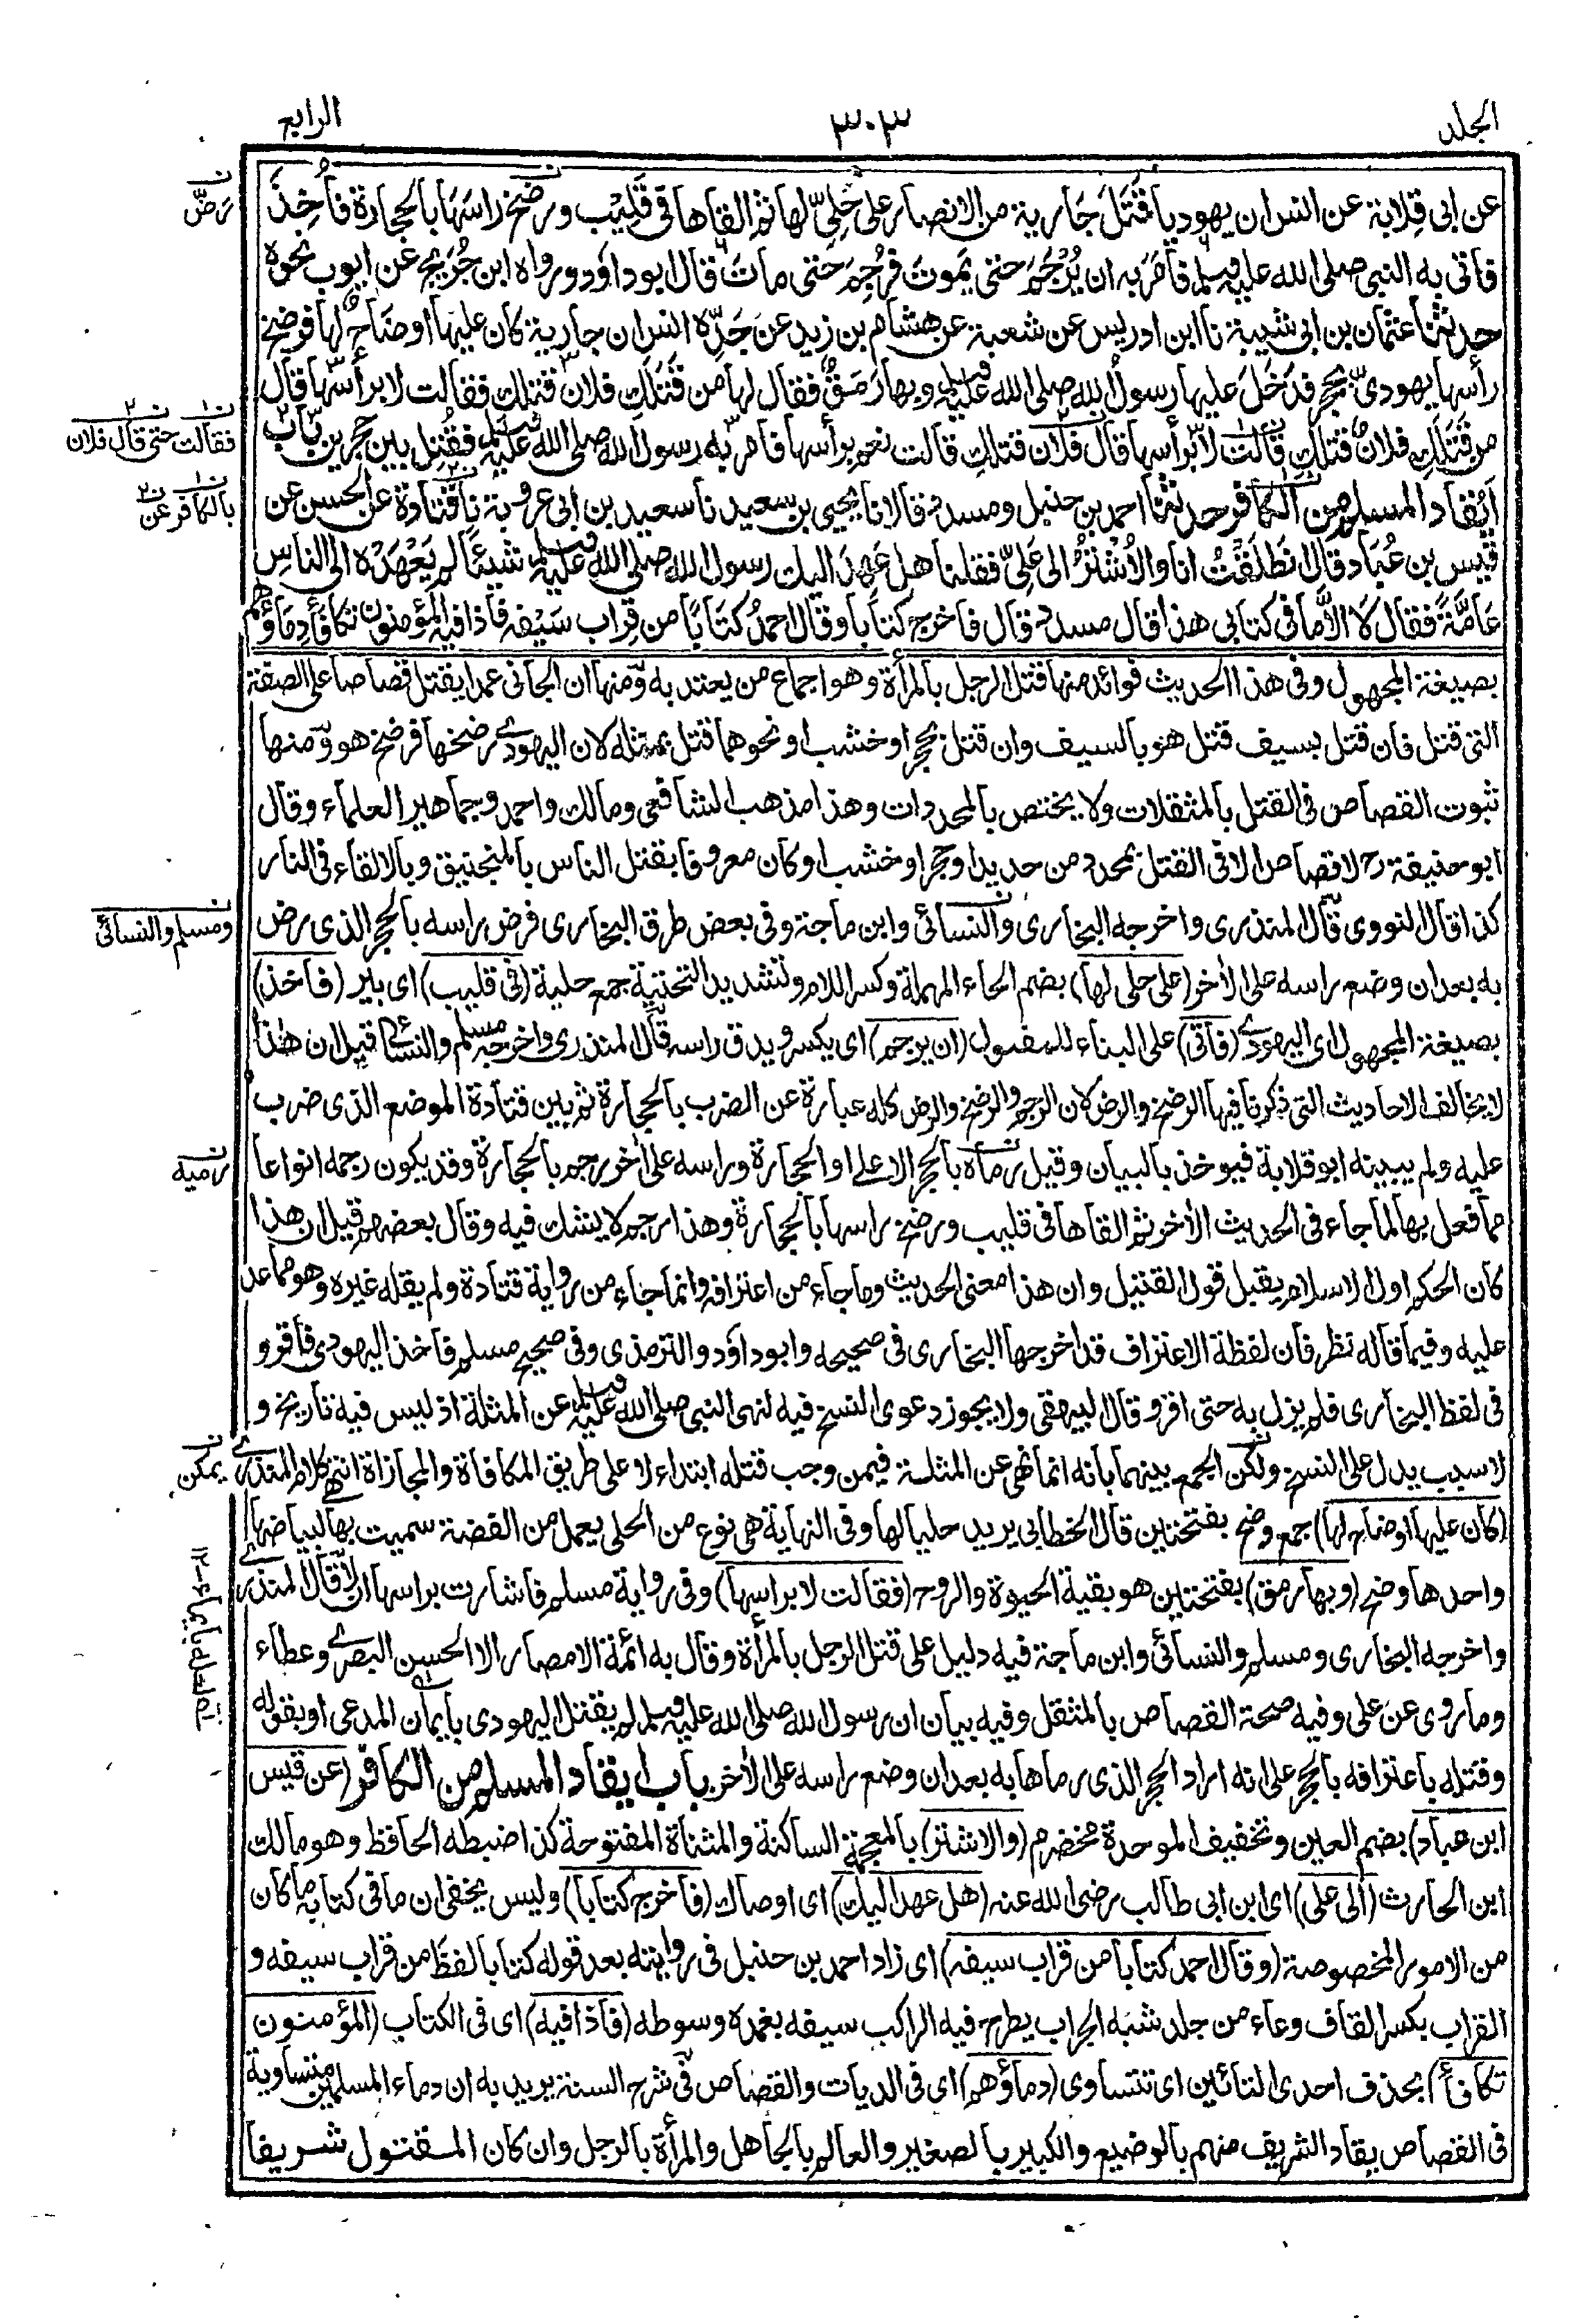 الجلد
٣٠٣
الرابع
عن ابى قِلابة عن انس ان يهوديا قَتَلَ جَارية من الانصار على حُلِىٍّ لها ثم القاها فى قَلِيْب ورضخ راسَهَا بالحجارة فأُخِذَ
فاتى به النبى صلى الله عليه وسلم فأَمَرَ به ان يُرْجَمَ حتى يموتَ فرُجِمَ حتى ماتَ قال ابو داؤد ورواه ابن جُرَيج عن ايوب نحوه
حدثنا عثمان بن ابى شيبة نا ابن ادريس عن شعبة عن هشام بن زيد عن جَدِّه انس ان جارية كان عليها اوضَاحٌ لها فرضخ
رأسها يهودىٌّ بحجر فدَخَلَ عليها رسولُ الله صلى الله عليه وسلم وبها رَمَقٌ فقال لها من قَتَلَكِ فلان قتلكِ فقالت لا برأسها قال
من قَتَلَكِ فلانٌ قتلكِ قالت لا برأسها قال فلان قتلكِ قالت نعم برأسها فامر به رسول الله صلى الله عليه وسلم فقُتِل بين حجرين باب
اَيُقاد المسلم من الكافر حدثنا احمد بن حنبل ومسدد قالا نا يحيى بن سعيد نا سعيد بن ابى عروبة نا قتادة عن الحسن عن
قيس بن عُبَاد قال انطَلَقْتُ انا والاَشْتَرُ الى عَلِىّ فقلنا هل عَهِدَ اليك رسول الله صلى الله عليه وسلم شيئا لم يَعْهَدْه الى الناس
عَامَّةً فقال لَا اِلَّا ما فى كتابى هذا قال مسدد قال فاخرج كتابا وقال احمدُ كتَابًا من قِراب سَيْفه فاذا فيه المؤمنون تكافأُ دِمَاؤُهم
بصيغة المجهول وفى هذا الحديث فوائد منها قتل الرجل بالمرأة وهو اجماع من يعتد به ومنها ان الجانى عمدا يقتل قصاصا على الصفة
التى قتل فان قتل بسيف قتل هو بالسيف وان قتل بحجر او خشب او نحوهما قتل بمثله لان اليهودى رضخها فرضخ هو ومنها
ثبوت القصاص فى القتل بالمثقلات ولا يختص بالمحددات وهذا مذهب الشافعى ومالك واحمد وجماهير العلماء وقال
ابو حنيفة رح لا قصاص الا فى القتل بمحدد من حديد او حجر او خشب او كان معروفا بقتل الناس بالمنجنيق وبالالقاء فى النار
كذا قال النووى قال المنذرى واخرجه البخارى والنسائى وابن ماجة وفى بعض طرق البخارى فرض راسه بالحجر الذى رض
به بعد ان وضع راسه على الأخر (على حلى لها) بضم الحاء المهملة وكسر اللام وتشديد التحتية جمع حلية (فى قليب) اى بير (فأخذ)
بصيغة المجهول اى اليهودى (فأتى) على البناء للمفعول (ان يرجم) اى يكسر ويدق راسه قال المنذرى واخرجه مسلم والنسائى قيل ان هذا
لا يخالف الاحاديث التى ذكرنا فيها الرضخ والرض لان الرجم والرضخ والرض كله عبارة عن الضرب بالحجارة ثم بين قتادة الموضع الذى ضرب
عليه ولم يبينه ابو قلابة فيوخذ بالبيان وقيل رماه بالحجر الاعلى او الحجارة وراسه على أخر رجم بالحجارة وقد يكون رجمه انواعا
مما فعل بها لما جاء فى الحديث الأخر ثم القاها فى قليب ورضخ راسها بالحجارة وهذا رجم لا يشك فيه وقال بعضهم قيل ان هذا
كان الحكم اول الاسلام يقبل قول القتيل وان هذا معنى الحديث وما جاء من اعترافه وانما جاء من رواية قتادة ولم يقله غيره وهو مما عد
عليه وفيما قاله نظر فان لفظة الاعتراف قد اخرجها البخارى فى صحيحه وابو داؤد والترمذى وفى صحيح مسلم فاخذ اليهودى فاقر و
فى لفظ البخارى فلم يزل به حتى اقر وقال البيهقى ولا يجوز دعوى النسخ فيه لنهى النبى صلى الله عليه وسلم عن المثلة اذ ليس فيه تاريخ و
لا سبب يدل على النسخ ولكن الجمع بينهما بانه انما نهى عن المثلة فيمن وجب قتله ابتداء لا على طريق المكافاة والمجازاة انتهى كلام المنذرى
(كان عليها اوضاح لها) جمع وضح بفتحتين قال الخطابى يريد حليا لها وفى النهاية هى نوع من الحلى يعمل من الفضة سميت بها لبياضها
واحدها وضح (وبها رمق) بفتحتين هو بقية الحيوة والروح (فقالت لا براسها) وفى رواية مسلم فاشارت براسها ان لا قال المنذرى
واخرجه البخارى ومسلم والنسائى وابن ماجة فيه دليل على قتل الرجل بالمرأة وقال به ائمة الامصار الا الحسن البصرى وعطاء
وما روى عن على وفيه صحة القصاص بالمثقل وفيه بيان ان رسول الله صلى الله عليه وسلم لم يقتل اليهودى بايمان المدعى او بقوله
وقتله باعترافه بالحجر على انه اراد الحجر الذى رماها به بعد ان وضع راسه على الأخر باب ايقاد المسلم من الكافر (عن قيس
ابن عباد) بضم العين وتخفيف الموحدة مخضرم (والاشتر) بالمعجمة الساكنة والمثناة المفتوحة كذا ضبطه الحافظ وهو مالك
ابن الحارث (الى على) اى ابن ابى طالب رضى الله عنه (هل عهد اليك) اى اوصاك (فاخرج كتابا) وليس يخفى ان ما فى كتابه ما كان
من الامور المخصوصة (وقال احمد كتابا من قراب سيفه) اى زاد احمد بن حنبل فى روايته بعد قوله كتابا لفظ من قراب سيفه و
القراب بكسر القاف وعاء من جلد شبه الجراب يطرح فيه الراكب سيفه بغمده وسوطه (فاذا فيه) اى فى الكتاب (المؤمنون
تكافأ) بحذف احدى التائين اى تتساوى (دماؤهم) اى فى الديات والقصاص فى شرح السنة يريد به ان دماء المسلمين متساوية
فى القصاص يقاد الشريف منهم بالوضيع والكبير بالصغير والعالم بالجاهل والمرأة بالرجل وان كان المقتول شريفا
ن
رَضّ
ن١ ن٢
فقالت حتى قال فلان
ن١ ن٢
بالكافر عن
ن
ومسلم والنسائى
ن
رميه
ن
يمكن